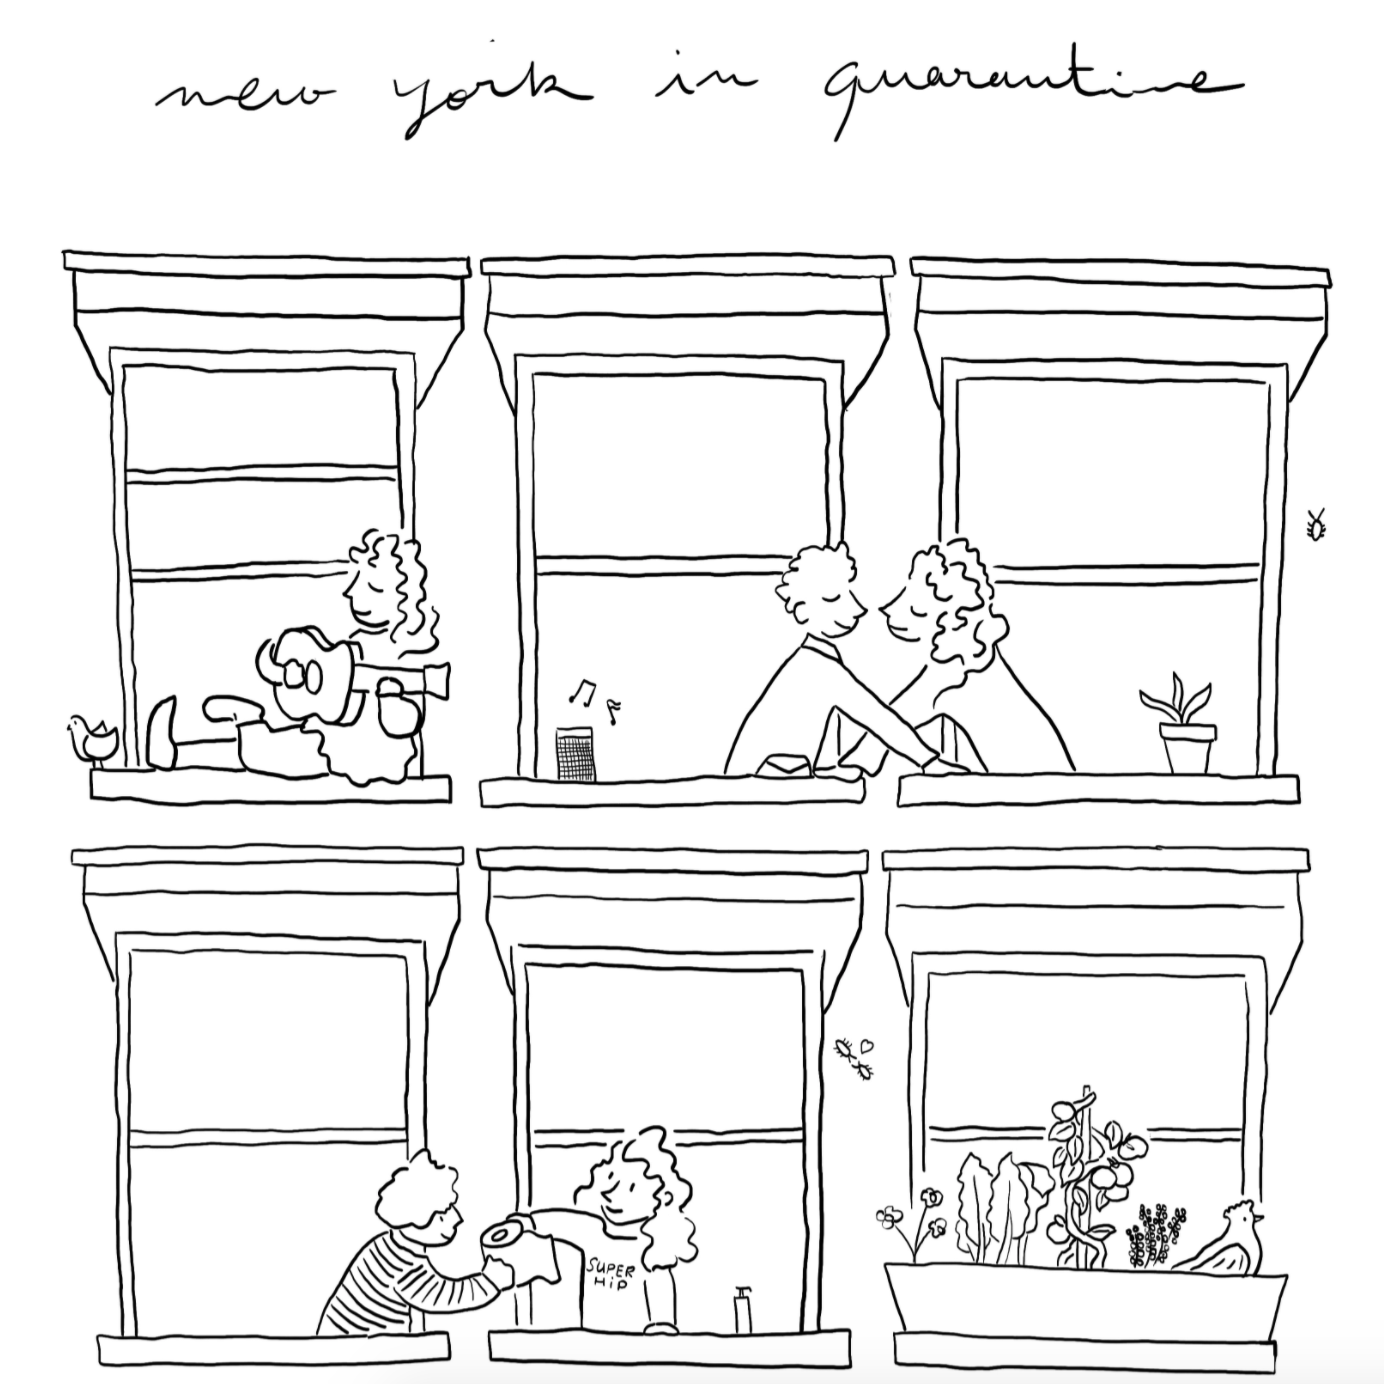 new york in quarantine
SUPER
HiP